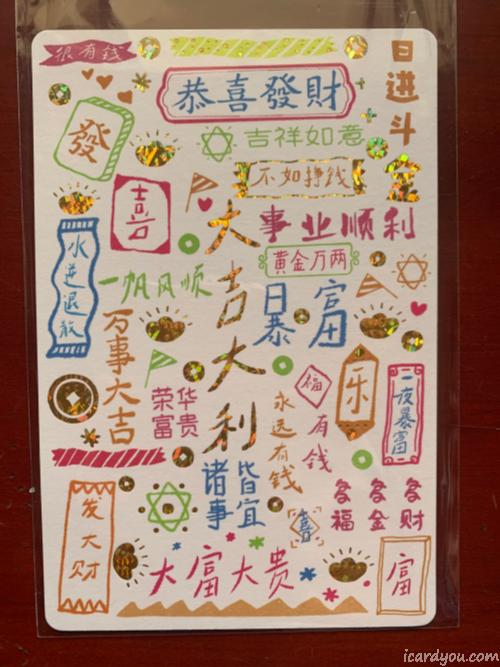 很有钱
恭喜發財
日进斗金
發
吉祥如意
不如挣钱
喜
大吉大利
事业顺利
水逆退散
黄金万两
一帆风顺
日暴富
万事大吉
荣华富贵
福
有钱
永远有钱
乐
一夜暴富
诸事皆宜
喜
多福
多金
多财
发大财
大富大贵
富
icardyou.com